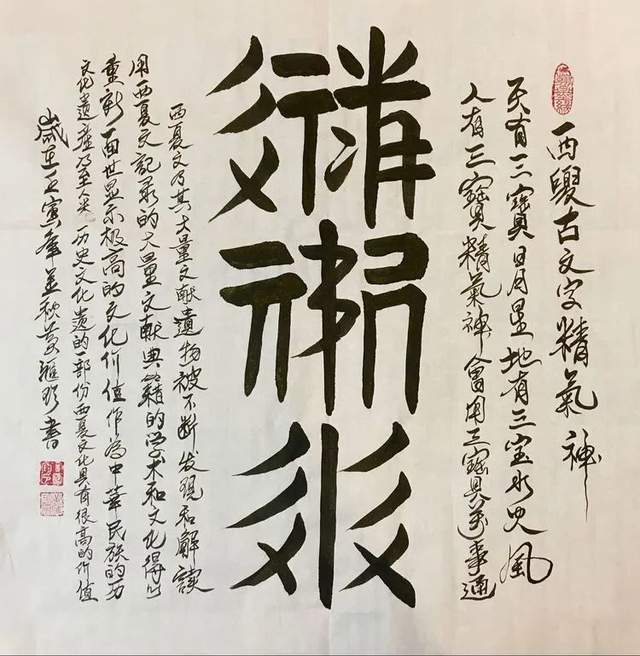 西夏古文字精氣神
天有三寶日月星地有三宝水火風
人有三寶精氣神會用三寶万事通
西夏文及其大量文献遺物被不断发現和解讀
用西夏文記录的大量文献典籍的学术和文化得以
重新面世显示极高的文化价值作為中華民族的历
文化遺產乃至人类历史文化遗的一部份西夏文化具有很高的价值
歲在壬寅年孟秋書